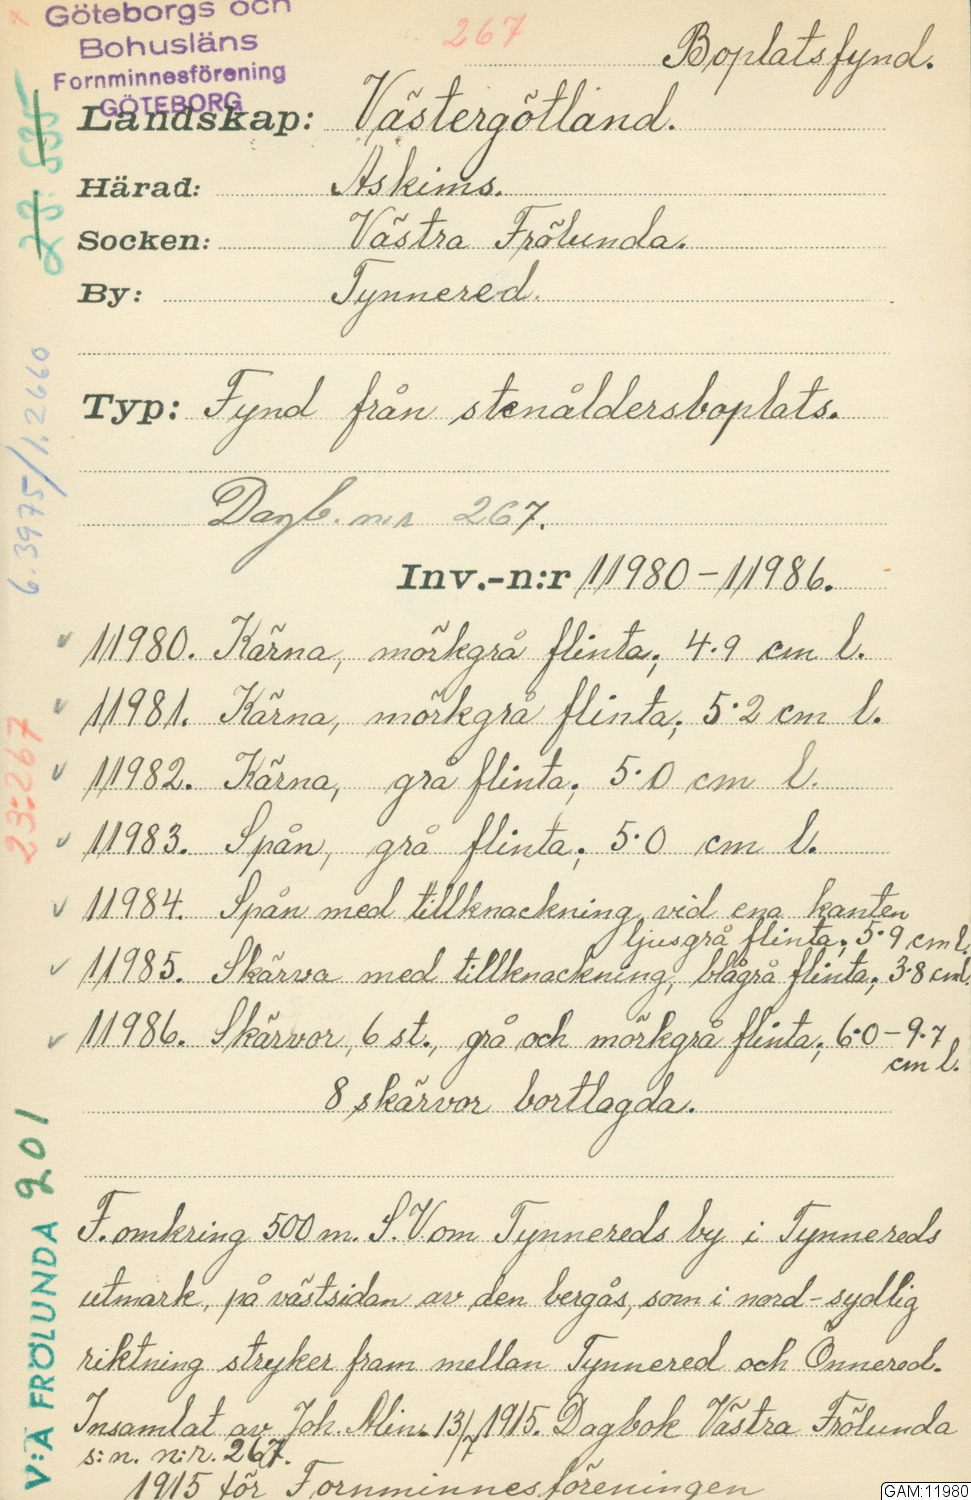 Göteborgs och
Bohusläns
Fornminnesförening
GÖTEBORG
267
Boplatsfynd.
Landskap: Västergötland.
Härad: Askims.
Socken: Västra Frölunda.
By: Tynnered.
Typ: Fynd från stenåldersboplats.
Dagb. n:r 267.
Inv.-n:r 11980-11986.
11980. Kärna, mörkgrå flinta; 4.9 cm l.
11981. Kärna, mörkgrå flinta; 5.2 cm l.
11982. Kärna, grå flinta; 5.0 cm l.
11983. Spån, grå flinta; 5.0 cm l.
11984. Spån med tillknackning vid ena kanten
ljusgrå flinta; 5.9 cm l.
11985. Skärva med tillknackning, blågrå flinta; 3.8 cm l.
11986. Skärvor, 6 st., grå och mörkgrå flinta; 6.0-9.7
cm l.
8 skärvor bortlagda.
F. omkring 500 m. S.V. om Tynnereds by i Tynnereds
utmark, på västsidan av den bergås, som i nord-sydlig
riktning stryker fram mellan Tynnered och Önnered.
Insamlat av Joh. Alin 13/7 1915. Dagbok Västra Frölunda
s:n. n:r. 267.
1915 för Fornminnesföreningen
23.535
6.3975/1.2660
23:267
V:A FRÖLUNDA 201
GAM:11980